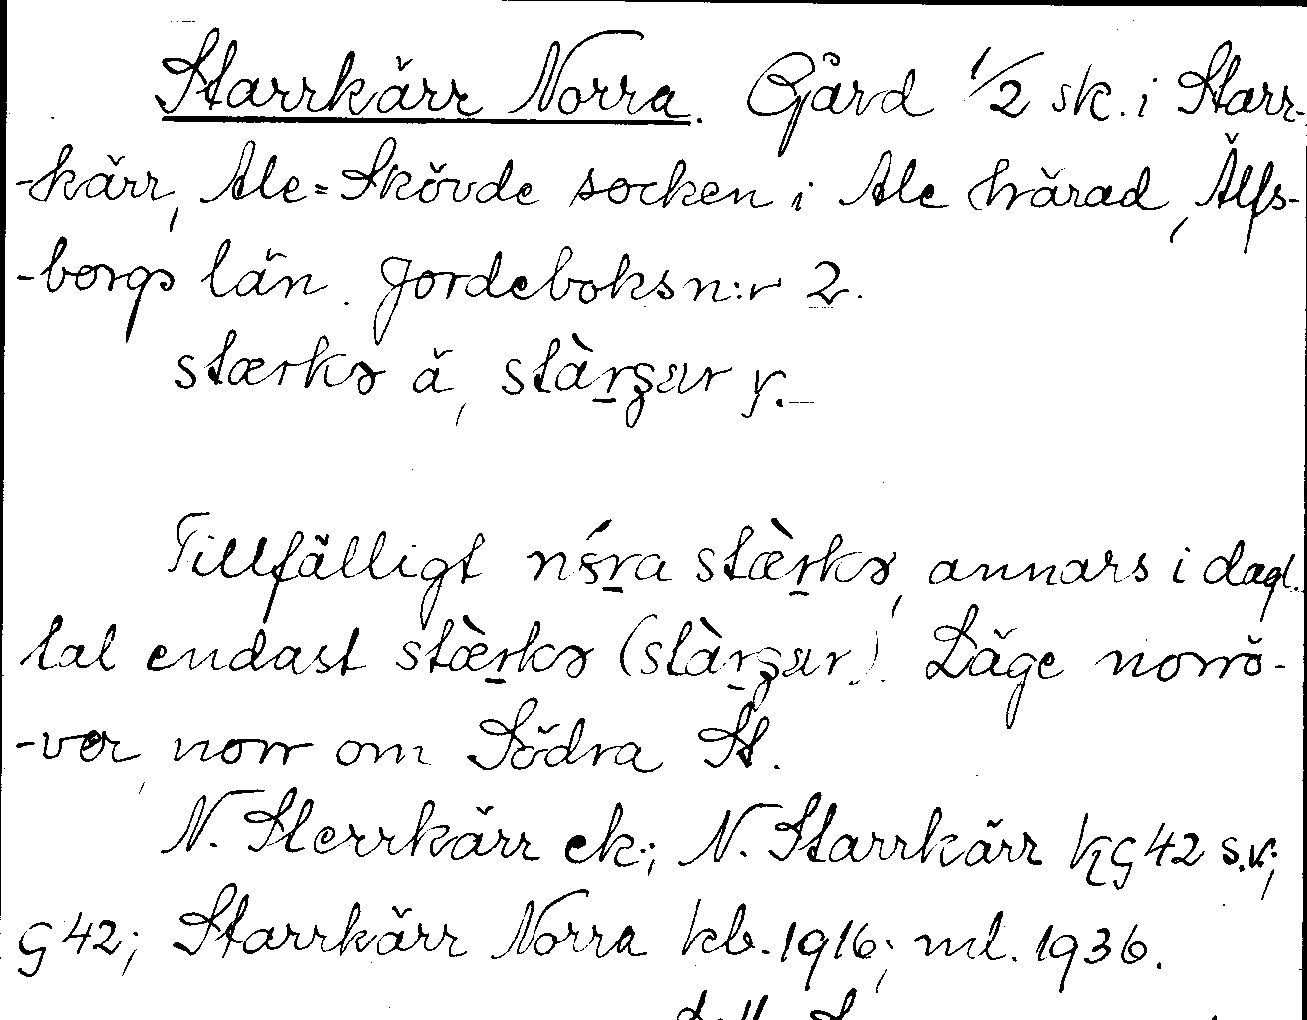 Starrkärr Norra. Gård 1/2 sk. i Starr-
-kärr, Ale-Skövde socken i Ale härad, Älfs-
-borgs län. Jordeboksn:r 2.
stærkɘ ä, stàr̲ʒɯr y.
Tillfälligt nɘ́r̲a stæ̀r̲kɘ, annars i dagl.
tal endast stæ̀r̲kɘ (stàr̲ʒɯr). Läge norrö-
-ver, norr om Södra St.
N. Sterrkärr ek.; N. Starrkärr kG42 s.v.;
G42; Starrkärr Norra kb. 1916; ml. 1936.